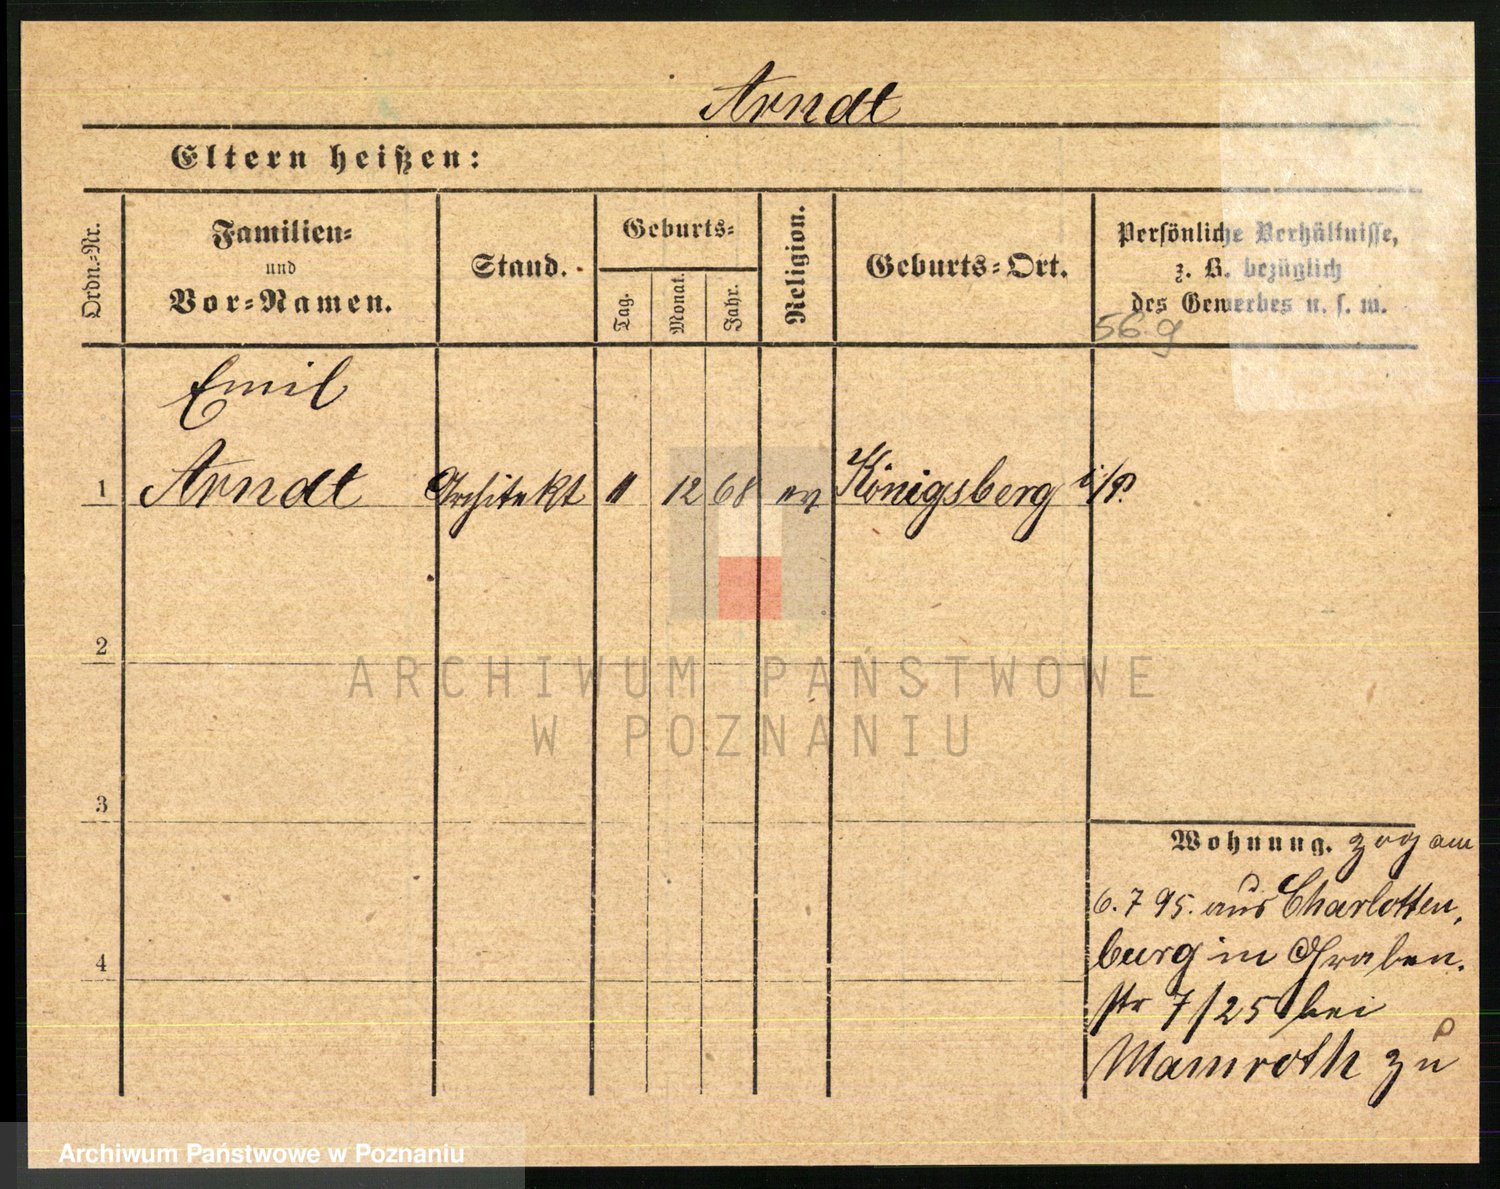 Arndt
Eltern heißen:
Ordn.-Nr.
Familien-
und
Vor-Namen.
Stand.
Geburts-
Tag.
Monat.
Jahr.
Religion.
Geburts-Ort.
Persönliche Verhältnisse,
z. B. bezüglich
des Gewerbes u. s. w.
56 g
Emil
1 Arndt Architekt 11 12 68 ev Königsberg i/P.
2
ARCHIWUM PAŃSTWOWE
W POZNANIU
3
Wohnung. zog am
6. 7 95. aus Charlotten,
burg in Graben.
str 7/25 bei
Mamroth zu
4
Archiwum Państwowe w Poznaniu